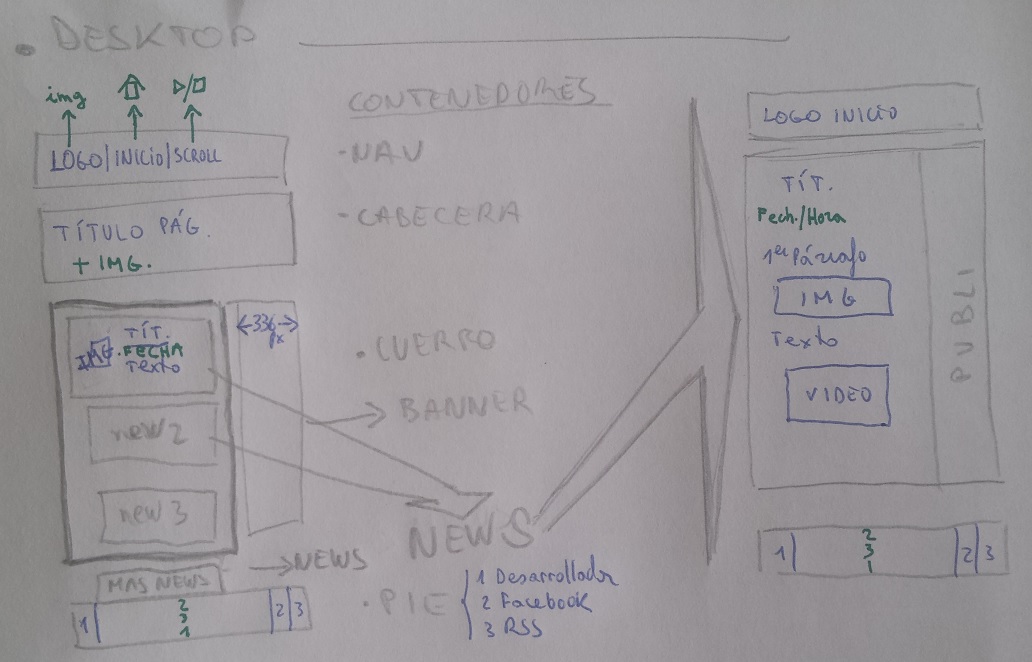 . DESKTOP
img
▷/□
LOGO/INICIO/SCROLL
TÍTULO PÁG.
+ IMG.
TÍT.
IMG. FECHA
Texto
new 2
new 3
←336→
px
MAS NEWS
1
2
3
1
2 3
CONTENEDORES
-NAV
-CABECERA
. CUERPO
→ BANNER
NEWS
→NEWS
. PIE
1 Desarrollador
2 Facebook
3 RSS
LOGO INICIO
TÍT.
Fech./Hora
1er Párrafo
IMG
Texto
VIDEO
PUBLI
1
2
3
1
2 3